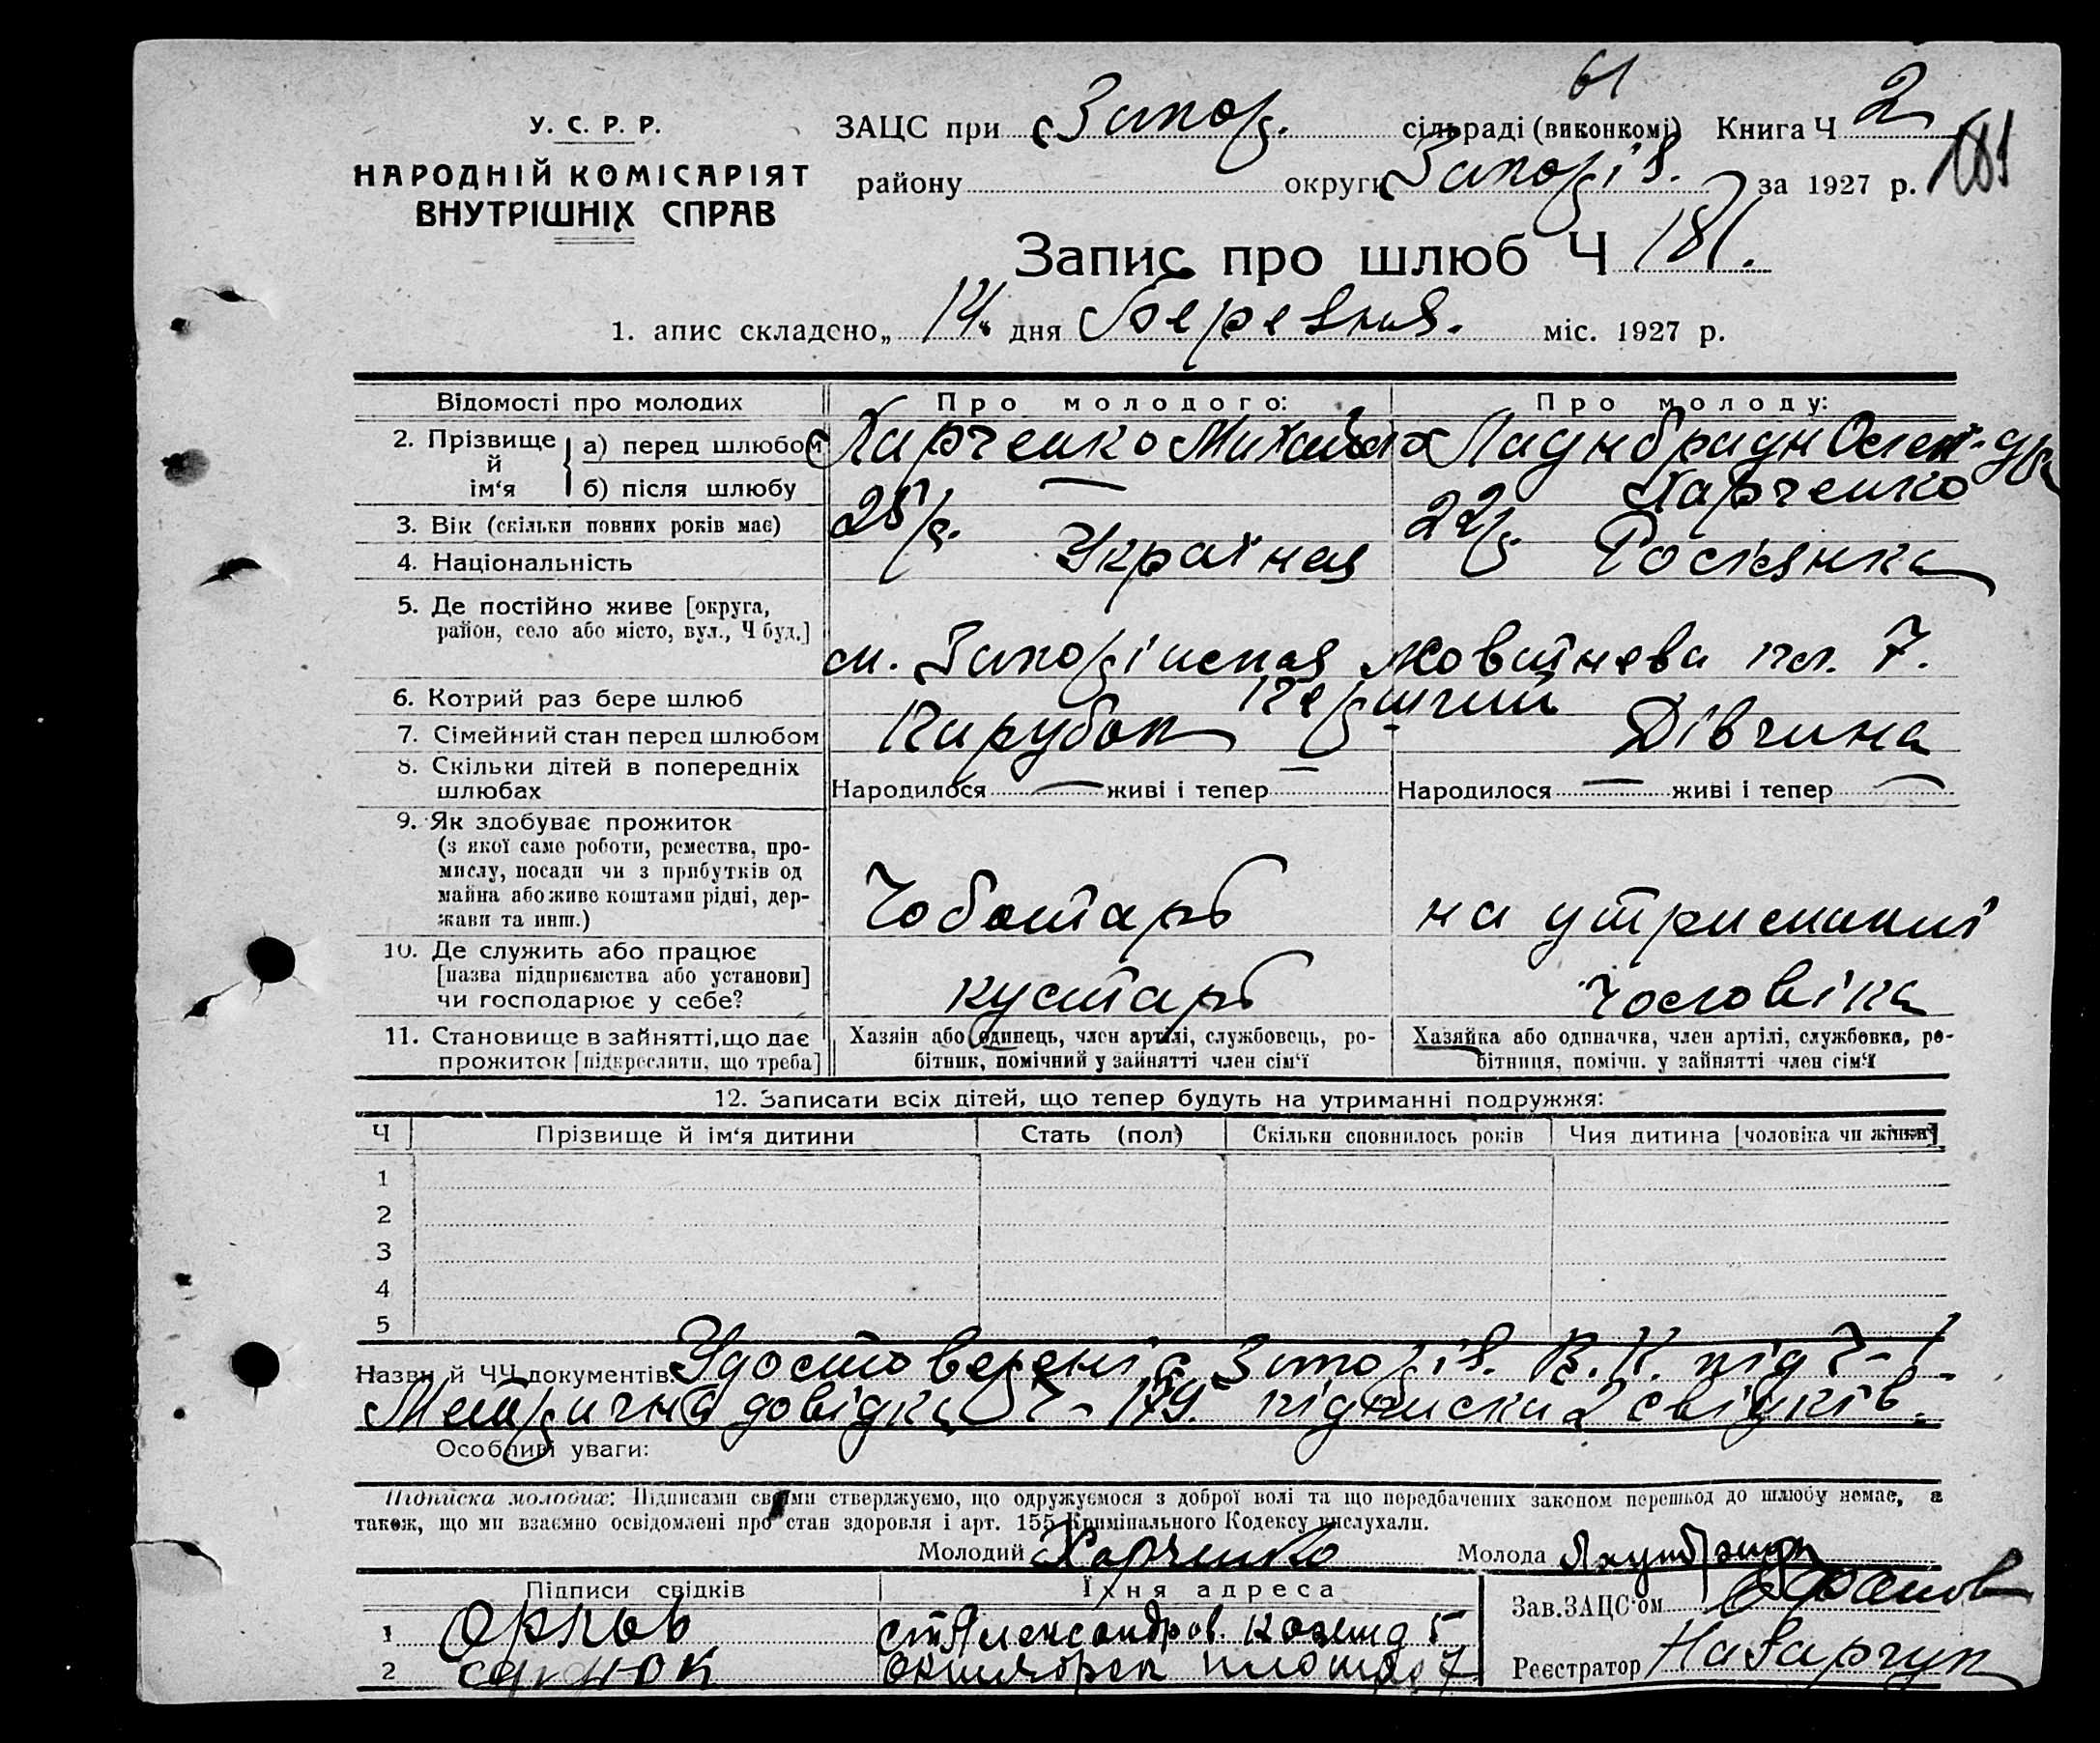 61
У. С. Р. Р.
НАРОДНІЙ КОМІСАРІЯТ
ВНУТРІШНІХ СПРАВ
ЗАЦС при Запор. сільраді (виконкомі) Книга Ч 2
району округи Запоріз. за 1927 р. 181
Запис про шлюб Ч 181.
1. апис складено „ 14 “ дня березня. міс. 1927 р.
Відомості про молодих Про молодого: Про молоду:
2. Прізвище й ім‘я а) перед шлюбом Харченко Михайло
б) після шлюбу — Харченко
3. Вік (скільки повних років має) 25 р. 22 р.
4. Національність Україн Росіянка
5. Де постійно живе [округа,
район, село або місто, вул., Ч буд.] м. Жовтнева пл. 7.
6. Котрий раз бере шлюб Перший
7. Сімейний стан перед шлюбом Парубок Дівчина
8. Скільки дітей в попередніх
шлюбах Народилося — живі і тепер — Народилося — живі і тепер —
9. Як здобуває прожиток
(з якої саме роботи, ремества, про-
мислу, посади чи з прибутків од
майна або живе коштами рідні, дер-
жави та инш.) Чоботарь на утриманні
10. Де служить або працює
[назва підприємства або установи]
чи господарює у себе? кустарь чоловіка
11. Становище в зайнятті, що дає
прожиток [підкреслити, що треба]
Хазяін або одинець, член артілі, службовець, ро-
бітник, помічний у зайнятті член сім‘ї
Хазяйка або одиначка, член артілі, службовка, ро-
бітниця, помічн. у зайнятті член сім‘ї
12. Записати всіх дітей, що тепер будуть на утриманні подружжя:
Ч Прізвище й ім‘я дитини Стать (пол) Скільки сповнилось років Чия дитина [чоловіка чи жінки]
1
2
3
4
5
Назви й ЧЧ документів Удостоверенія Запоріз. В. К. під ч-1
Метрична довідка ч- 179. підписка 2 свідків.
Особливі уваги:
Підписка молодих: Підписами своїми стверджуємо, що одружуємося з доброї волі та що передбачених законом перешкод до шлюбу немає, а
також, що ми взаємно освідомлені про стан здоровля і арт. 155 Кримінального Кодексу вислухали.
Молодий Харченко Молода
Підписи свідків Їхня адреса
1
2 площад 7
Зав. ЗАЦС‘ом
Реєстратор Назарчук